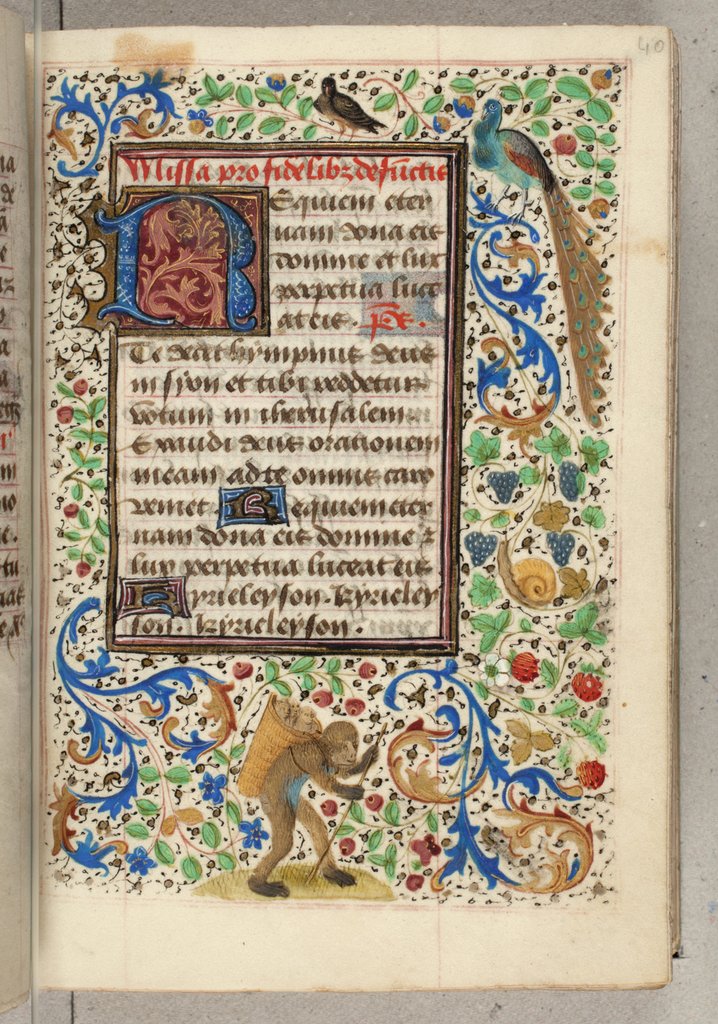 40
Missa pro fidelibz defūctis
Requiem eter
nam dona eis
domine et lux
perpetua luce
at eis. p̄s.
Te decet hympnus deus
in syon et tibi reddetur
votum in iherusalem
Exaudi deus orationem
meam ad te omnis caro
veniet Requiem eter
nam dona eis domine z
lux perpetua luceat eis
Kyrieleyson. kyrieley
son. kyrieleyson.